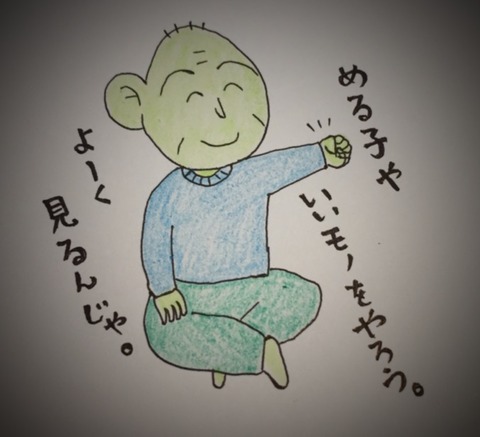 める子や
いいモノをやろう。
よーく
見るんじゃ。